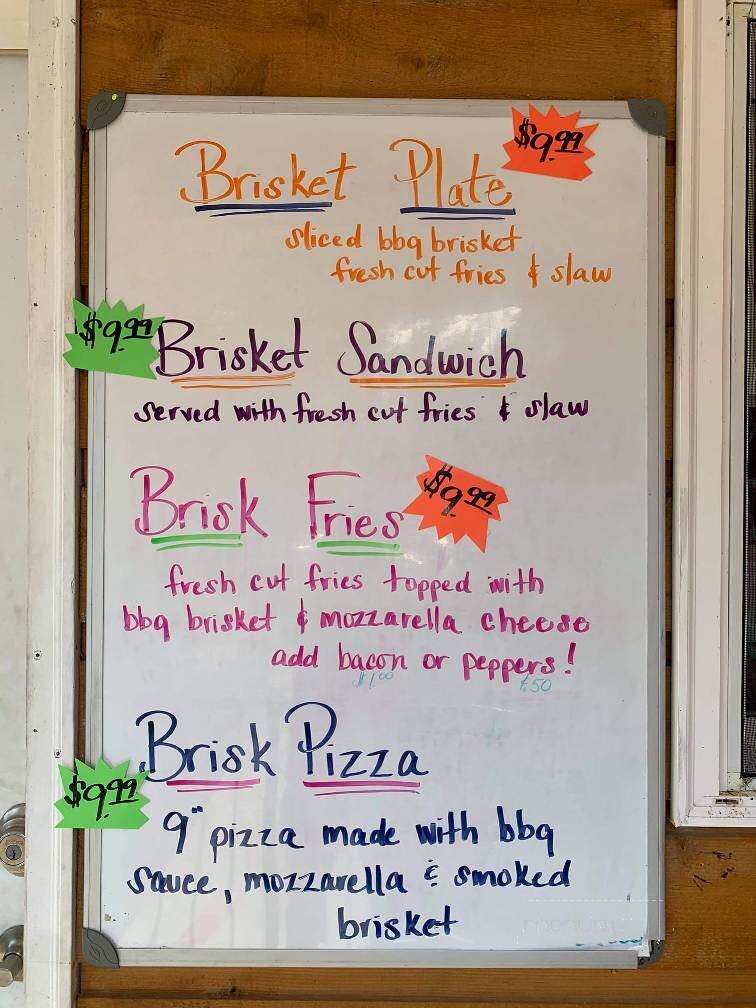 Brisket Plate $9.99
sliced bbq brisket
fresh cut fries & slaw
$9.99 Brisket Sandwich
served with fresh cut fries & slaw
Brisk Fries $9.99
fresh cut fries topped with
bbq brisket & mozzarella cheese
add bacon or peppers!
$1.00 .50
Brisk Pizza
$9.99
9" pizza made with bbq
sauce, mozzarella & smoked
brisket